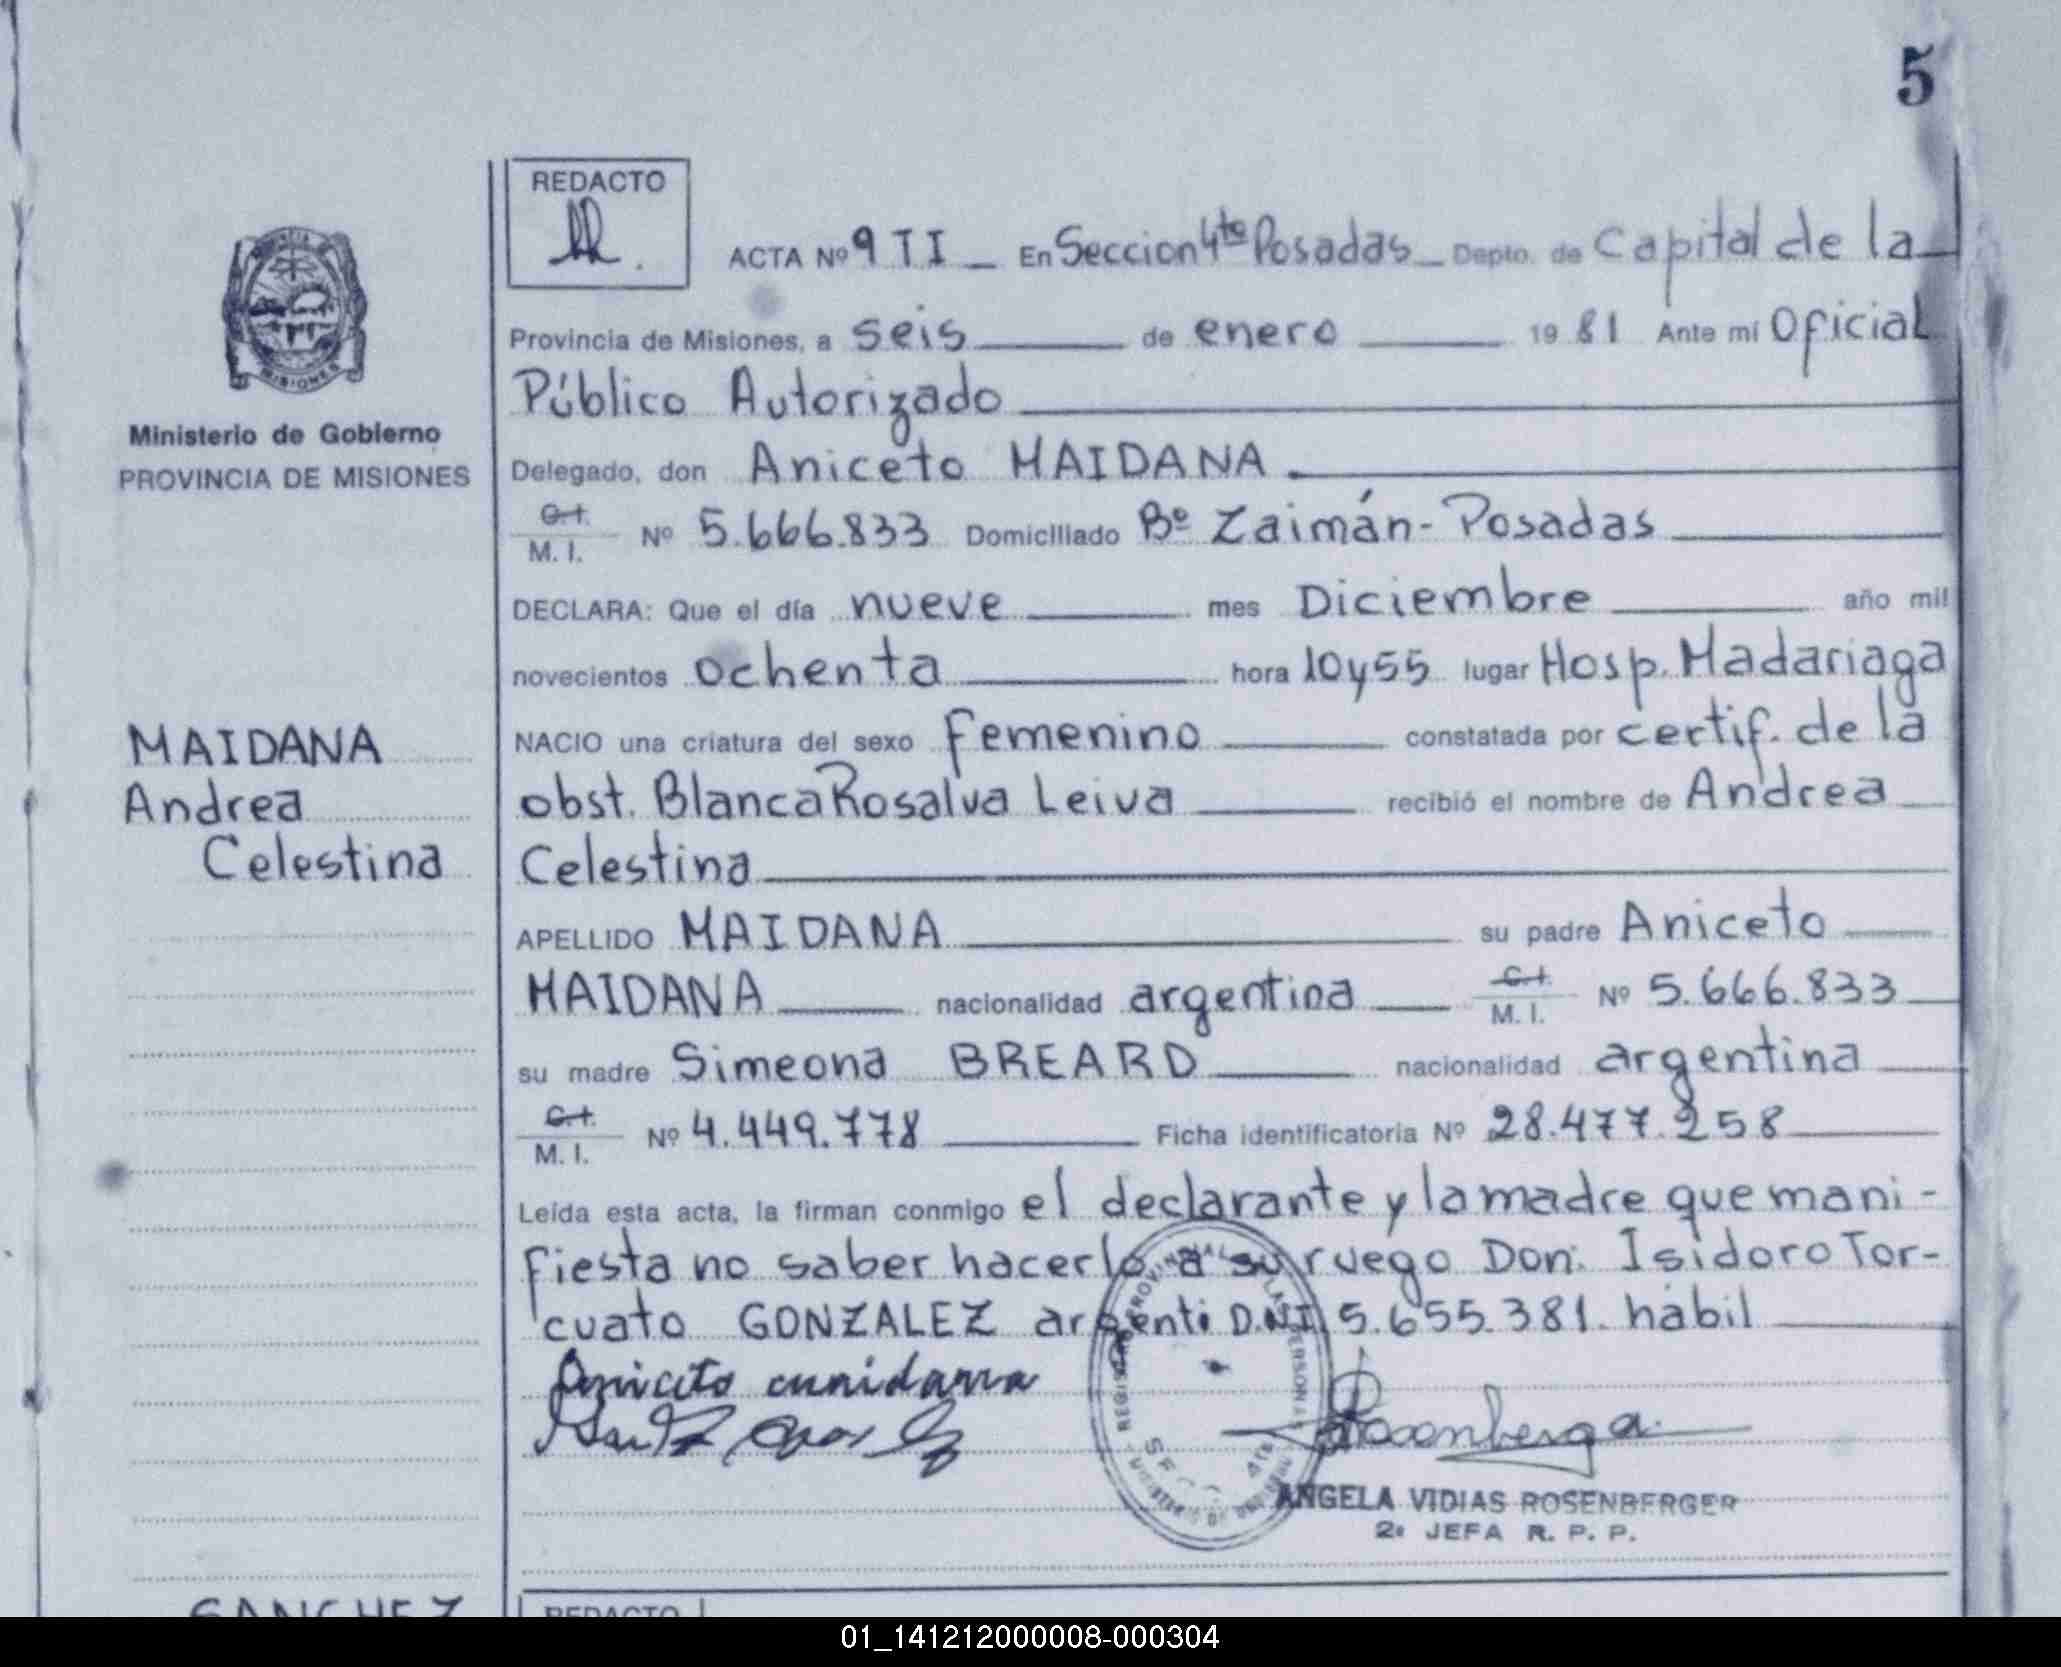 5
REDACTO
ACTA Nº 9 T I En Seccion 4ta Posadas Depto. de Capital de la
Provincia de Misiones, a seis de enero 1981 Ante mí Oficial
Público Autorizado
Delegado, don Aniceto MAIDANA
C.I. M.I. Nº 5.666.833 Domiciliado Bº Zaimán - Posadas
DECLARA: Que el día nueve mes Diciembre año mil
novecientos ochenta hora 10 y 55 lugar Hosp. Madariaga
NACIO una criatura del sexo femenino constatada por certif. de la
obst. Blanca Rosalva Leiva recibió el nombre de Andrea
Celestina
APELLIDO MAIDANA su padre Aniceto
MAIDANA nacionalidad argentina C.I. M.I. Nº 5.666.833
su madre Simeona BREARD nacionalidad argentina
C.I. M.I. Nº 4.449.778 Ficha identificatoria Nº 28.477.258
Leída esta acta, la firman conmigo el declarante y la madre que mani-
fiesta no saber hacerlo a su ruego Don: Isidoro Tor-
cuato GONZALEZ argenti D.N.I 5.655.381. hábil
ANGELA VIDIAS ROSENBERGER
2ª JEFA R. P. P.
MISIONES
Ministerio de Gobierno
PROVINCIA DE MISIONES
MAIDANA
Andrea
Celestina
SANCHEZ
REDACTO
01_141212000008-000304